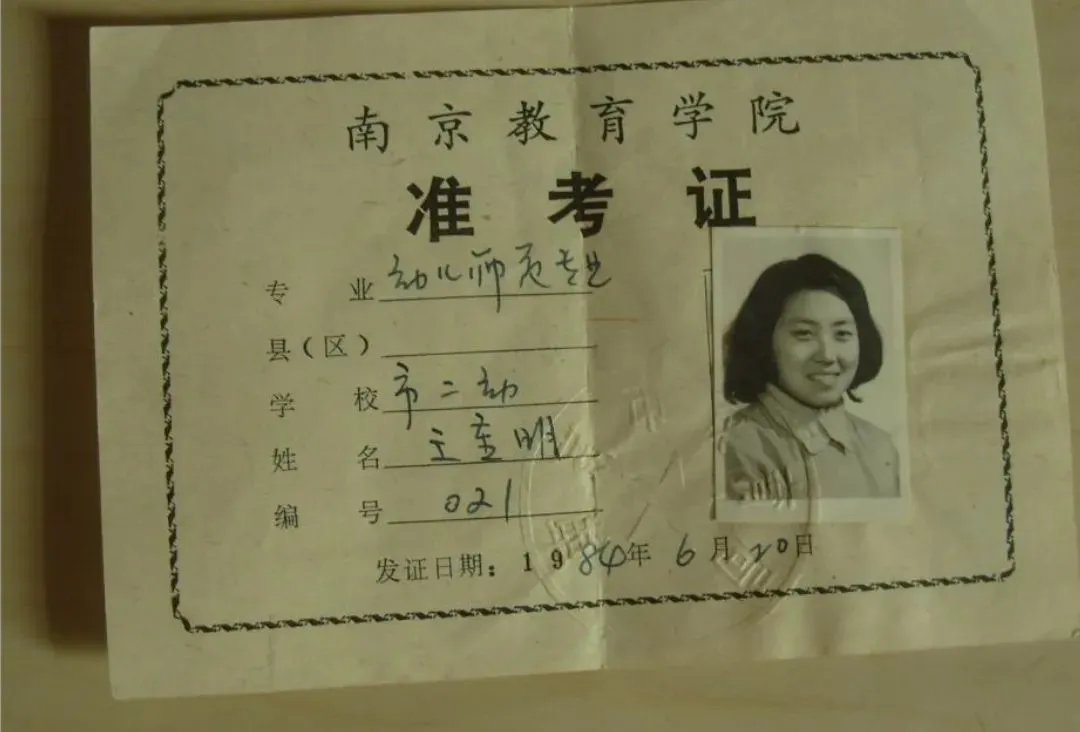 南京教育学院
准考证
专 业 幼儿师范专业
县（区）
学 校 市二幼
姓 名 王 明
编 号 021
发证日期：1984年6月20日